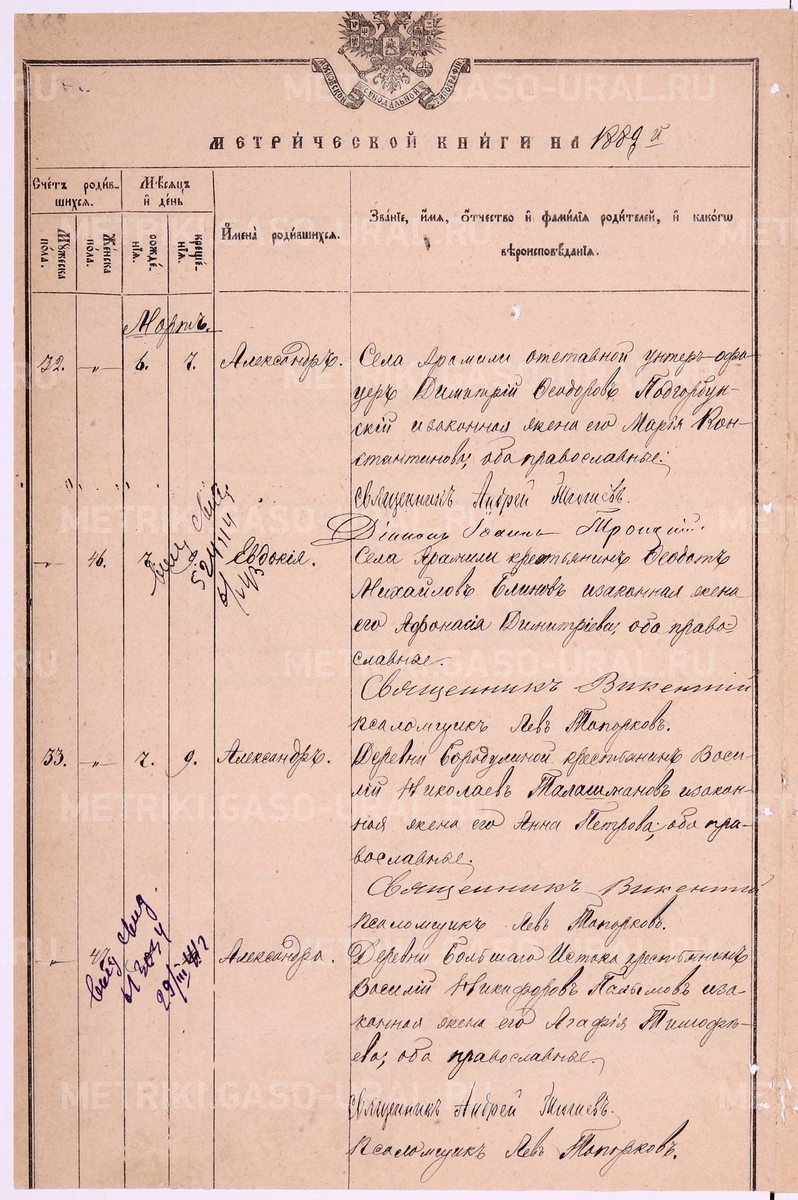 МОСКОВСКОЙ СИНОДАЛЬНОЙ ТИПОГРАФІИ
МЕТРИ́ЧЕСКОЙ КНИ́ГИ НА 1889 й
Сче́тъ роди́вшихся.
Мѣ́сяцъ и́ де́нь
И́мена̀ роди́вшихся.
Зва́нїе, и́мя, ѻ́тчество и́ фами́лїя роди́телей, и́ како́гѡ вѣроисповѣ́данїя.
Мꙋ́жеска по́ла.
Же́нска по́ла.
рожде́нїя.
креще́нїя.
Мартъ.
32. -"- 6. 7. Александръ.
Села Арамили отставной унтеръ-офи-
церъ Димитрій Ѳеодоровъ Подгорбун-
скій и законная жена его Марія Кон-
стантинова; оба православные.
Священникъ Андрей
Діаконъ Іоаннъ Троицкій.
-"- 46. 7. Евдокія.
Села Арамили крестьянинъ Ѳеодотъ
Михайловъ Блиновъ и законная жена
его Афонасія Димитріева; оба право-
славные.
Священникъ Викентій
Псаломщикъ Левъ Топорковъ.
33. -"- 7. 9. Александръ.
Деревни Бородулиной крестьянинъ Васи-
лій Николаевъ Талашмановъ и закон-
ная жена его Анна Петрова; оба пра-
вославные.
Священникъ Викентій
Псаломщикъ Левъ Топорковъ.
-"- 47. Александра.
Деревни Большаго Истока крестьянинъ
Василій Никифоровъ Палымовъ и за-
конная жена его Агафія Тимофѣ-
ева; оба православные.
Священникъ Андрей
Псаломщикъ Левъ Топорковъ.
524114
29/III
METRIKI.GASO-URAL.RU